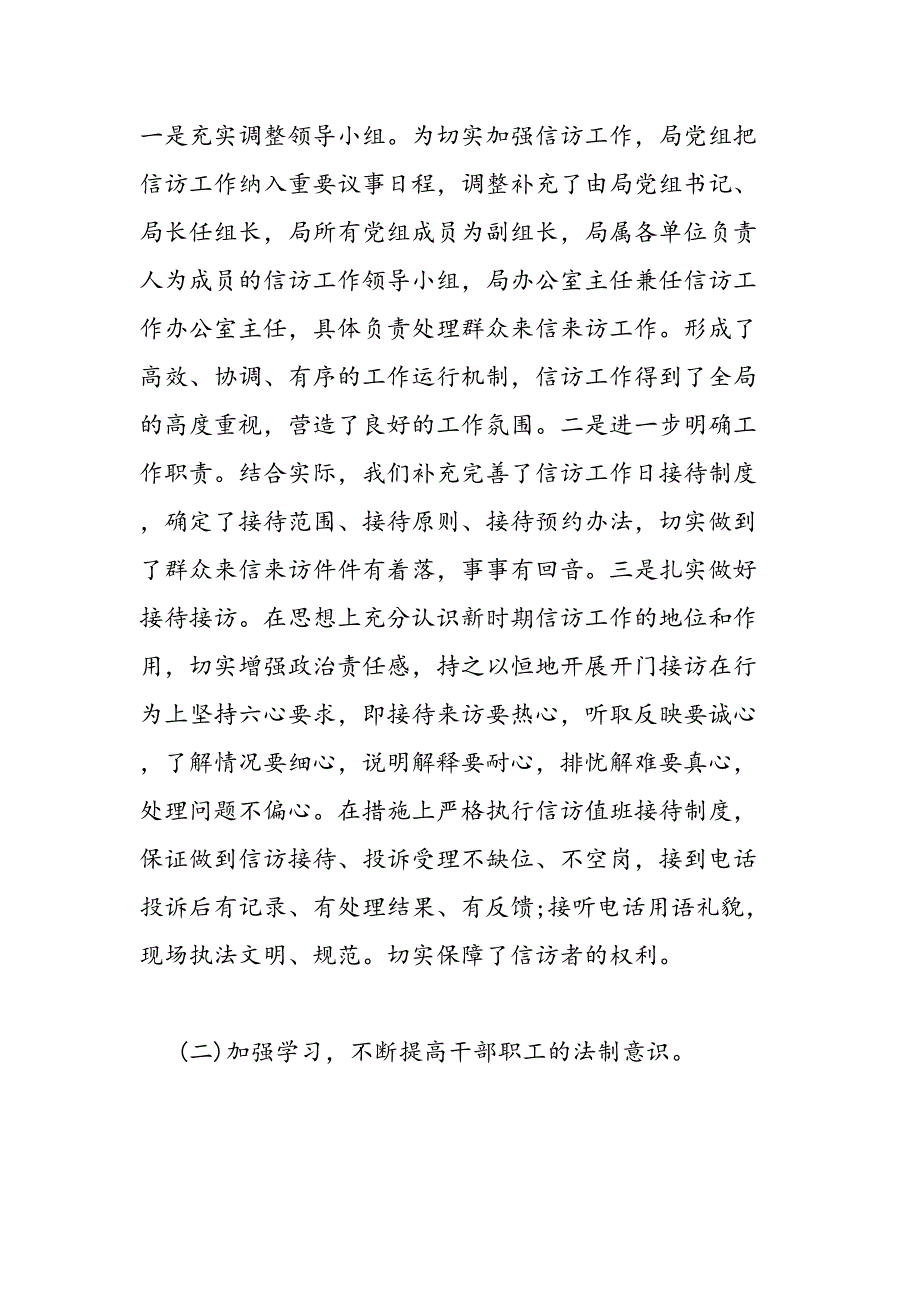 一是充实调整领导小组。为切实加强信访工作，局党组把
信访工作纳入重要议事日程，调整补充了由局党组书记、
局长任组长，局所有党组成员为副组长，局属各单位负责
人为成员的信访工作领导小组，局办公室主任兼任信访工
作办公室主任，具体负责处理群众来信来访工作。形成了
高效、协调、有序的工作运行机制，信访工作得到了全局
的高度重视，营造了良好的工作氛围。二是进一步明确工
作职责。结合实际，我们补充完善了信访工作日接待制度
，确定了接待范围、接待原则、接待预约办法，切实做到
了群众来信来访件件有着落，事事有回音。三是扎实做好
接待接访。在思想上充分认识新时期信访工作的地位和作
用，切实增强政治责任感，持之以恒地开展开门接访在行
为上坚持六心要求，即接待来访要热心，听取反映要诚心
，了解情况要细心，说明解释要耐心，排忧解难要真心，
处理问题不偏心。在措施上严格执行信访值班接待制度，
保证做到信访接待、投诉受理不缺位、不空岗，接到电话
投诉后有记录、有处理结果、有反馈;接听电话用语礼貌，
现场执法文明、规范。切实保障了信访者的权利。
(二)加强学习，不断提高干部职工的法制意识。